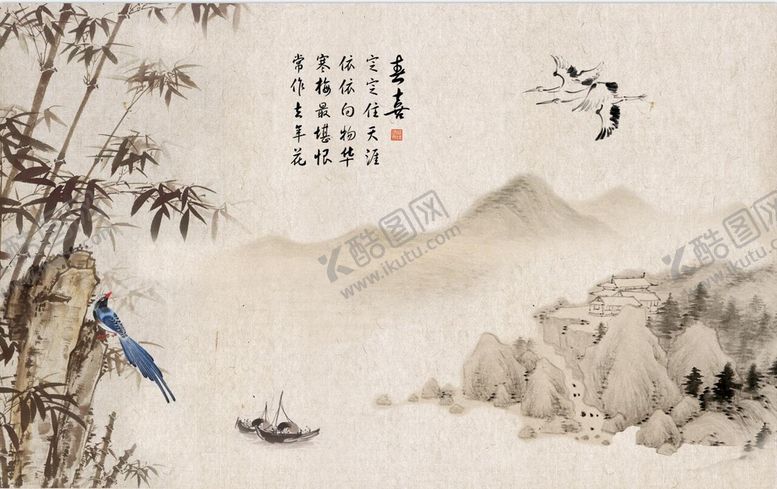 春喜
定定住天涯
依依向物华
寒梅最堪恨
常作去年花
酷图网
www.ikutu.com
酷图网
www.ikutu.com